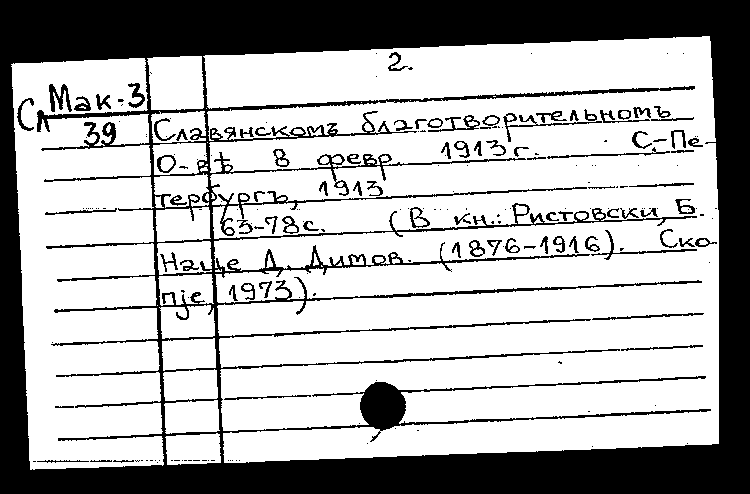 2.
Сл Мак-3
39
Славянскомъ благотворительномъ
О-вѣ 8 февр. 1913 г. С.-Пе-
тербургъ, 1913
63-78 с. (В кн.: Ристовски, Б.
Наце Д. Димов. (1876-1916). Ско-
пје, 1973).